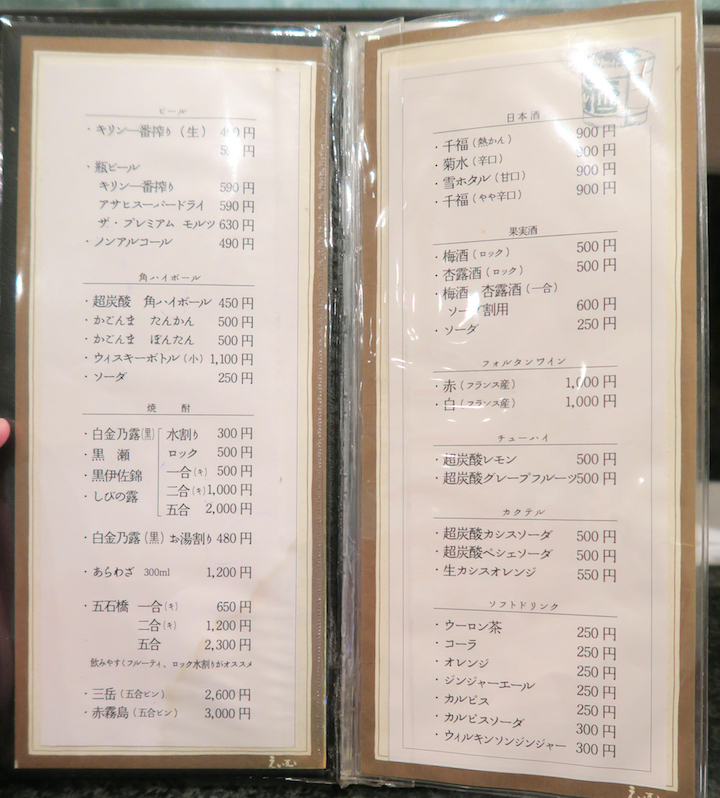 ビール
・キリン一番搾り（生） 円
円
・瓶ビール
キリン一番搾り 590円
アサヒスーパードライ 590円
ザ・プレミアム モルツ 630円
・ノンアルコール 490円
角ハイボール
・超炭酸 角ハイボール 450円
・かごんま たんかん 500円
・かごんま ぽんたん 500円
・ウィスキーボトル（小） 1,100円
・ソーダ 250円
焼酎
・白金乃露（黒） 水割り 300円
・黒瀬 ロック 500円
・黒伊佐錦 一合（キ） 500円
・しびの露 二合（キ） 1,000円
五合 2,000円
・白金乃露（黒）お湯割り 480円
・あらわざ 300ml 1,200円
・五石橋 一合（キ） 650円
二合（キ） 1,200円
五合 2,300円
飲みやすくフルーティ、ロック水割りがオススメ
・三岳（五合ビン） 2,600円
・赤霧島（五合ビン） 3,000円
えいむ
酒
日本酒
・千福（熱かん） 900円
・菊水（辛口） 900円
・雪ホタル（甘口） 900円
・千福（やや辛口） 900円
果実酒
・梅酒（ロック） 500円
・杏露酒（ロック） 500円
・梅酒 杏露酒（一合）
ソーダ割用 600円
・ソーダ 250円
フォルタンワイン
・赤（フランス産） 1,000円
・白（フランス産） 1,000円
チューハイ
・超炭酸レモン 500円
・超炭酸グレープフルーツ 500円
カクテル
・超炭酸カシスソーダ 500円
・超炭酸ペシェソーダ 500円
・生カシスオレンジ 550円
ソフトドリンク
・ウーロン茶 250円
・コーラ 250円
・オレンジ 250円
・ジンジャーエール 250円
・カルピス 250円
・カルピスソーダ 300円
・ウィルキンソンジンジャー 300円
えいむ